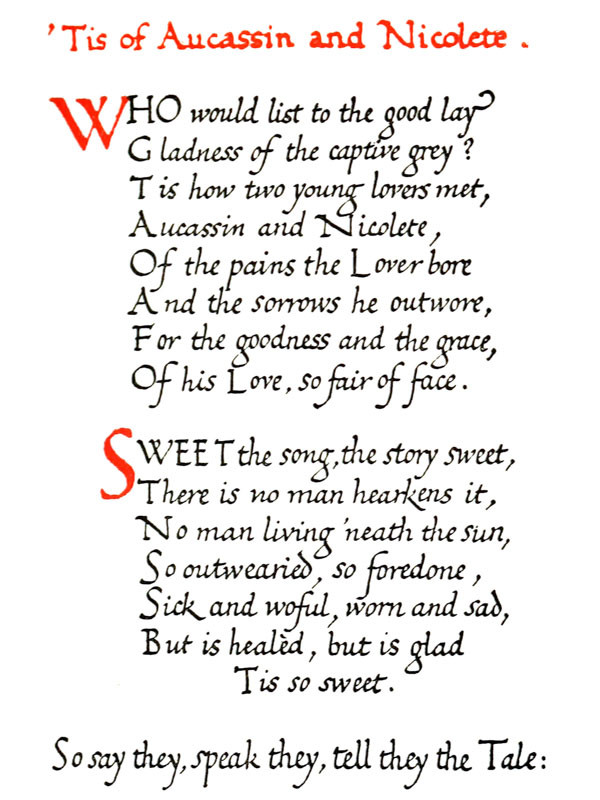 'Tis of Aucassin and Nicolete.
WHO would list to the good lay
Gladness of the captive grey?
Tis how two young lovers met,
Aucassin and Nicolete,
Of the pains the Lover bore
And the sorrows he outwore,
For the goodness and the grace,
Of his Love, so fair of face.
SWEET the song, the story sweet,
There is no man hearkens it,
No man living 'neath the sun,
So outwearied, so foredone,
Sick and woful, worn and sad,
But is healèd, but is glad
Tis so sweet.
So say they, speak they, tell they the Tale: